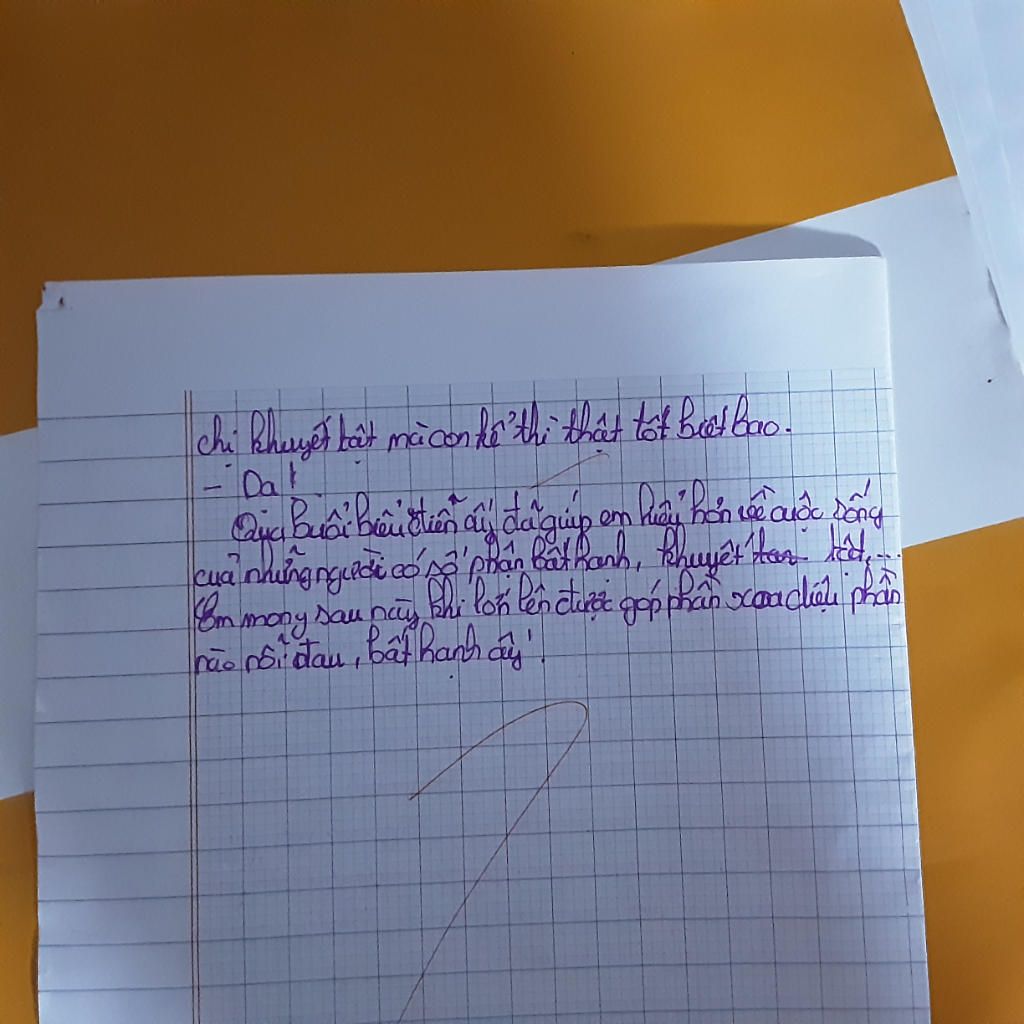 chị khuyết tật mà con kể thì thật tốt biết bao.
- Dạ!
Qua buổi biểu diễn ấy đã giúp em hiểu hơn về cuộc sống
của những người có số phận bất hạnh, khuyết tật,...
Em mong sau này khi lớn lên được góp phần xoa dịu phần
nào nỗi đau, bất hạnh ấy!